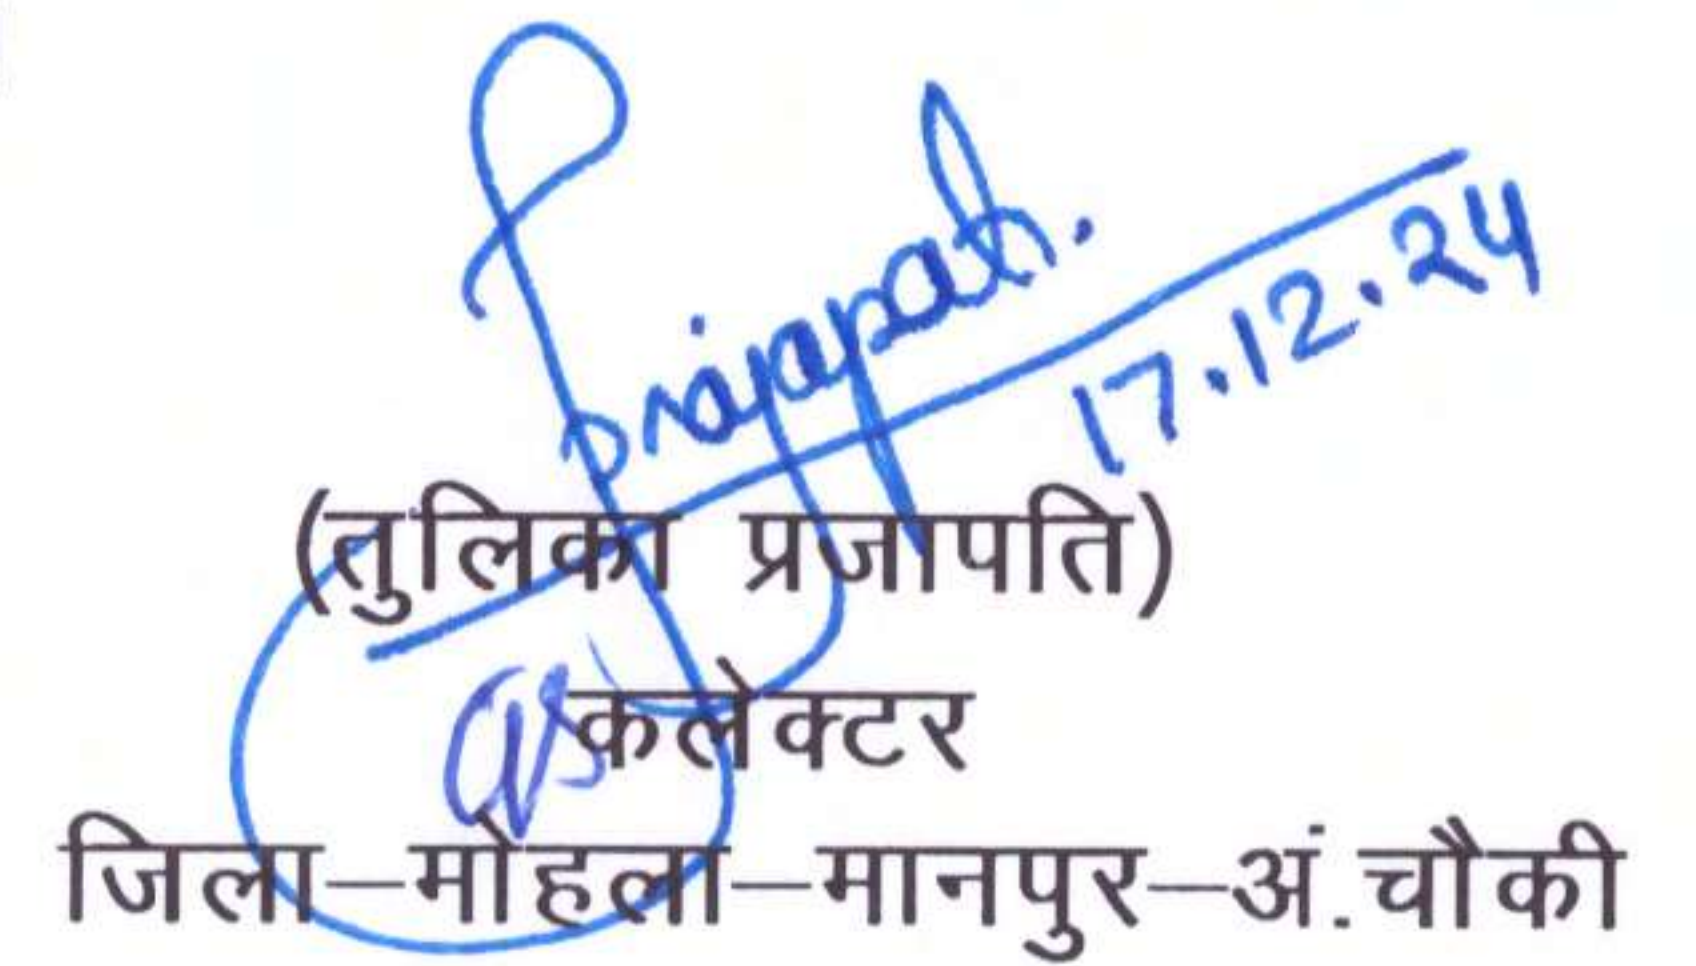 Prajapati.
17.12.24
(तुलिका प्रजापति)
कलेक्टर
जिला–मोहला–मानपुर–अं.चौकी